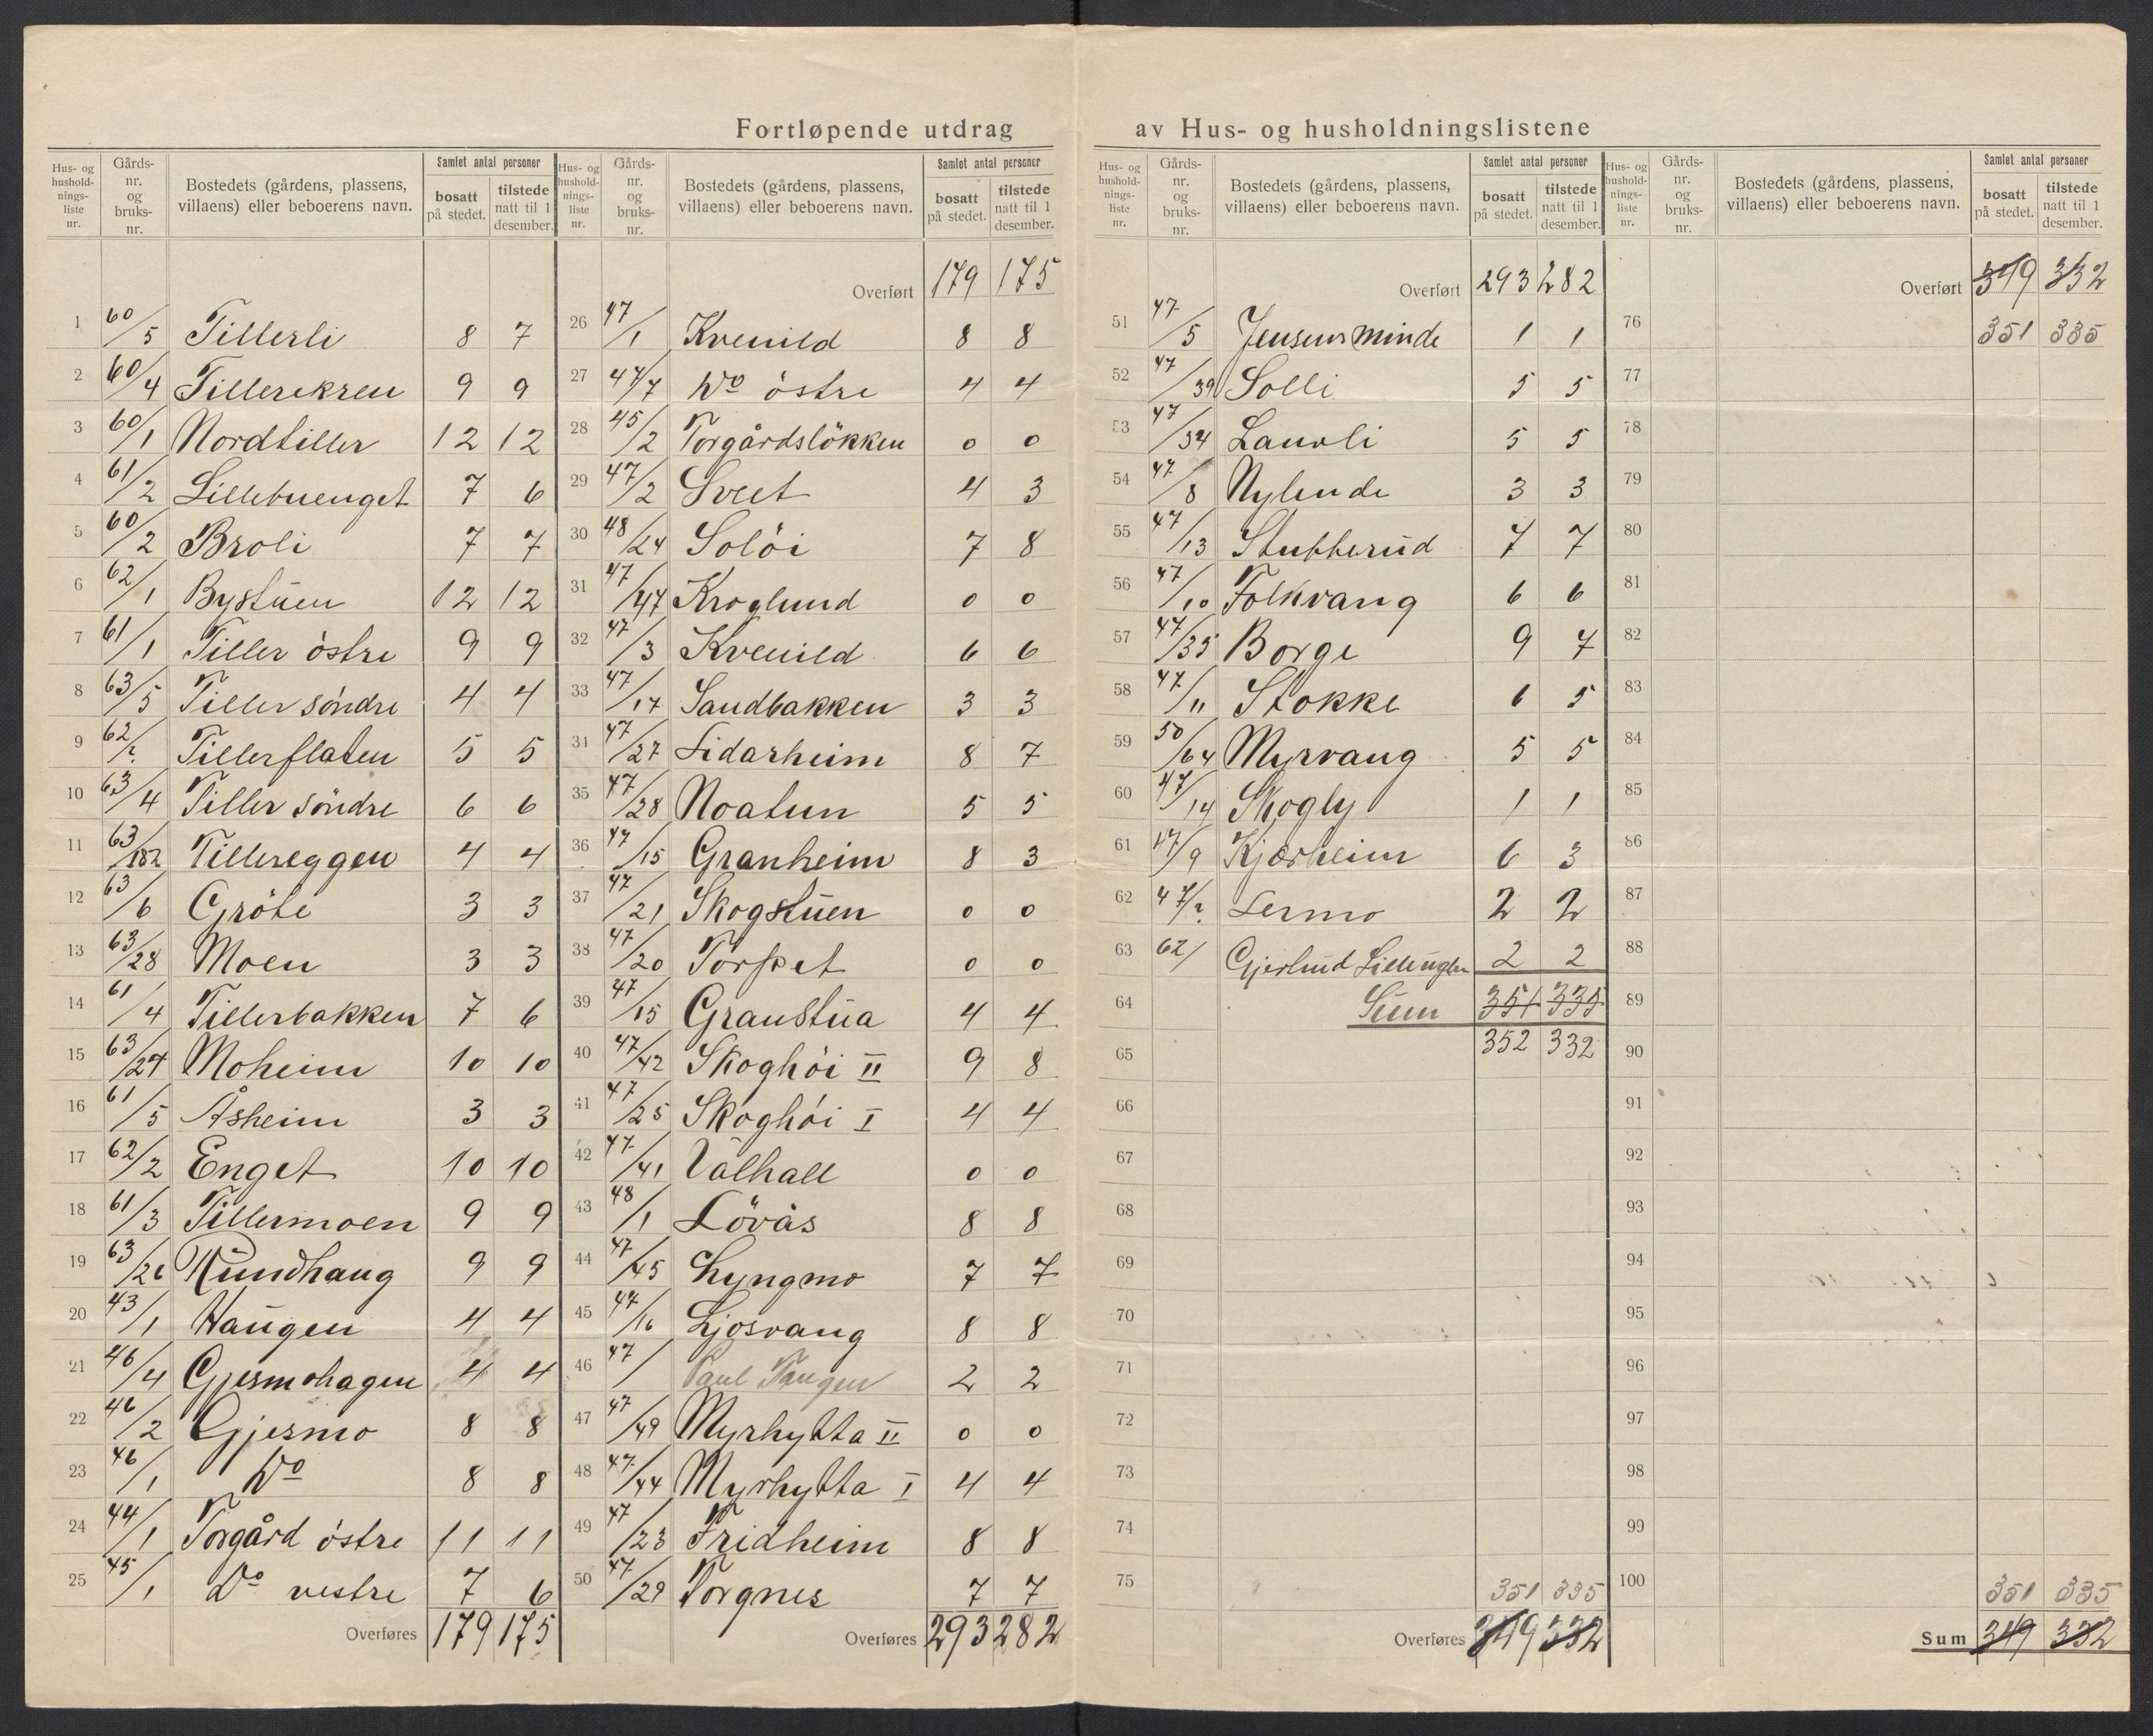 Fortløpende utdrag av Hus- og husholdningslistene
Hus- og husholdnings-liste nr. | Gårds-nr. og bruks-nr. | Bostedets (gårdens, plassens, villaens) eller beboerens navn. | Samlet antal personer | bosatt på stedet. | tilstede natt til 1 desember.
1 60/5 Tillerli 8 7
2 60/4 Tillerekren 9 9
3 60/1 Nordtiller 12 12
4 61/2 Lillebuenget 7 6
5 60/2 Broli 7 7
6 62/1 Bystuen 12 12
7 61/1 Tiller östre 9 9
8 63/5 Tiller söndre 4 4
9 62/? Tillerflaten 5 5
10 63/4 Tiller söndre 6 6
11 63/182 Tillereggen 4 4
12 63/6 Gröte 3 3
13 63/28 Moen 3 3
14 61/4 Tillerbakken 7 6
15 63/27 Moheim 10 10
16 61/5 Åsheim 3 3
17 62/2 Enget 10 10
18 61/3 Tillermoen 9 9
19 63/26 Rundhaug 9 9
20 43/1 Haugen 4 4
21 46/4 Gjesmohagen 4 4
22 46/2 Gjesmo 8 8
23 46/1 Do 8 8
24 44/1 Torgård östre 11 11
25 45/1 Do vestre 7 6
Overføres 179 175
Hus- og husholdnings-liste nr. | Gårds-nr. og bruks-nr. | Bostedets (gårdens, plassens, villaens) eller beboerens navn. | Samlet antal personer | bosatt på stedet. | tilstede natt til 1 desember.
Overført 179 175
26 47/1 Kvenild 8 8
27 47/7 Do östre 4 4
28 45/2 Torgårdslökken 0 0
29 47/2 Sveet 4 3
30 48/24 Solöi 7 8
31 47/47 Kroglund 0 0
32 47/3 Kvenild 6 6
33 47/17 Sandbakken 3 3
34 47/27 Lidarheim 8 7
35 47/28 Noatun 5 5
36 47/15 Granheim 8 3
37 47/21 Skogstuen 0 0
38 47/20 Torpet 0 0
39 47/15 Granstua 4 4
40 47/42 Skoghöi II 9 8
41 47/25 Skoghöi I 4 4
42 47/41 Valhall 0 0
43 48/1 Lövås 8 8
44 47/45 Lyngmo 7 7
45 47/16 Ljosvang 8 8
46 47/ Paul Tangen 2 2
47 47/49 Myrhytta II 0 0
48 47/44 Myrhytta I 4 4
49 47/23 Fridheim 8 8
50 47/29 Torgnes 7 7
Overføres 293 282
Hus- og husholdnings-liste nr. | Gårds-nr. og bruks-nr. | Bostedets (gårdens, plassens, villaens) eller beboerens navn. | Samlet antal personer | bosatt på stedet. | tilstede natt til 1 desember.
Overført 293 282
51 47/5 Jensens minde 1 1
52 47/39 Solli 5 5
53 47/34 Lauvli 5 5
54 47/8 Nylende 3 3
55 47/13 Stubberud 7 7
56 47/10 Folkvang 6 6
57 47/35 Borge 9 7
58 47/11 Stokke 6 5
59 50/64 Myrvang 5 5
60 47/14 Skogly 1 1
61 47/9 Kjærheim 6 3
62 47/? Lermo 2 2
63 62/ Gjerlaud 2 2
64 Sum 351 335
65 352 332
66
67
68
69
70
71
72
73
74
75 351 335
Overføres 349 332
Hus- og husholdnings-liste nr. | Gårds-nr. og bruks-nr. | Bostedets (gårdens, plassens, villaens) eller beboerens navn. | Samlet antal personer | bosatt på stedet. | tilstede natt til 1 desember.
Overført 349 332
76 351 335
77
78
79
80
81
82
83
84
85
86
87
88
89
90
91
92
93
94
95
96
97
98
99
100 351 335
Sum 349 332